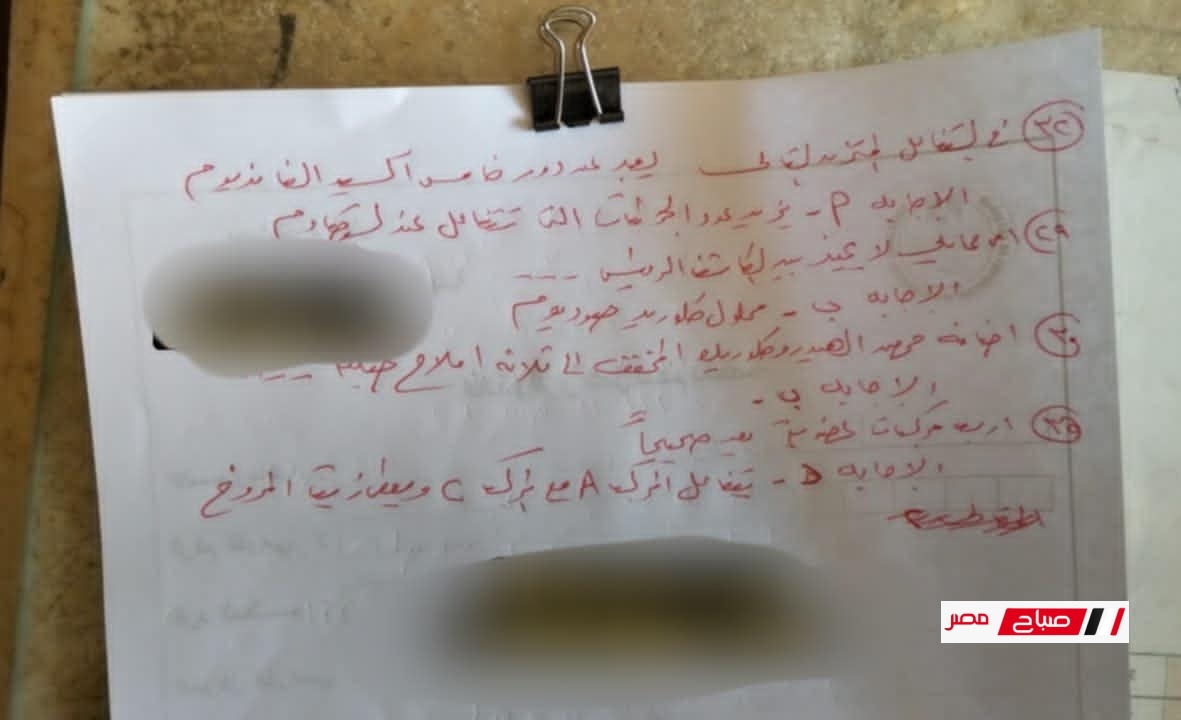 ٣٢ في التفاعل المتزن التالى يعبر عن دور خامس اكسيد الفانديوم
الاجابه P - يزيد عدد الجزيئات التى تتفاعل عند التصادم
٢٩ اى مما يلى لا يميز بين الكاشف الرئيسى ---
الاجابه ب - محلول كلوريد صوديوم
٣٠ اضافه حمض الهيدروكلوريك المخفف الى ثلاثه املاح صلبه
الاجابه ب -
٣٩ اربع مركبات عضويه يعد صحيحاً
الاجابه D - يتفاعل المركب A مع المركب C ويعطى زيت المروخ
صباح مصر